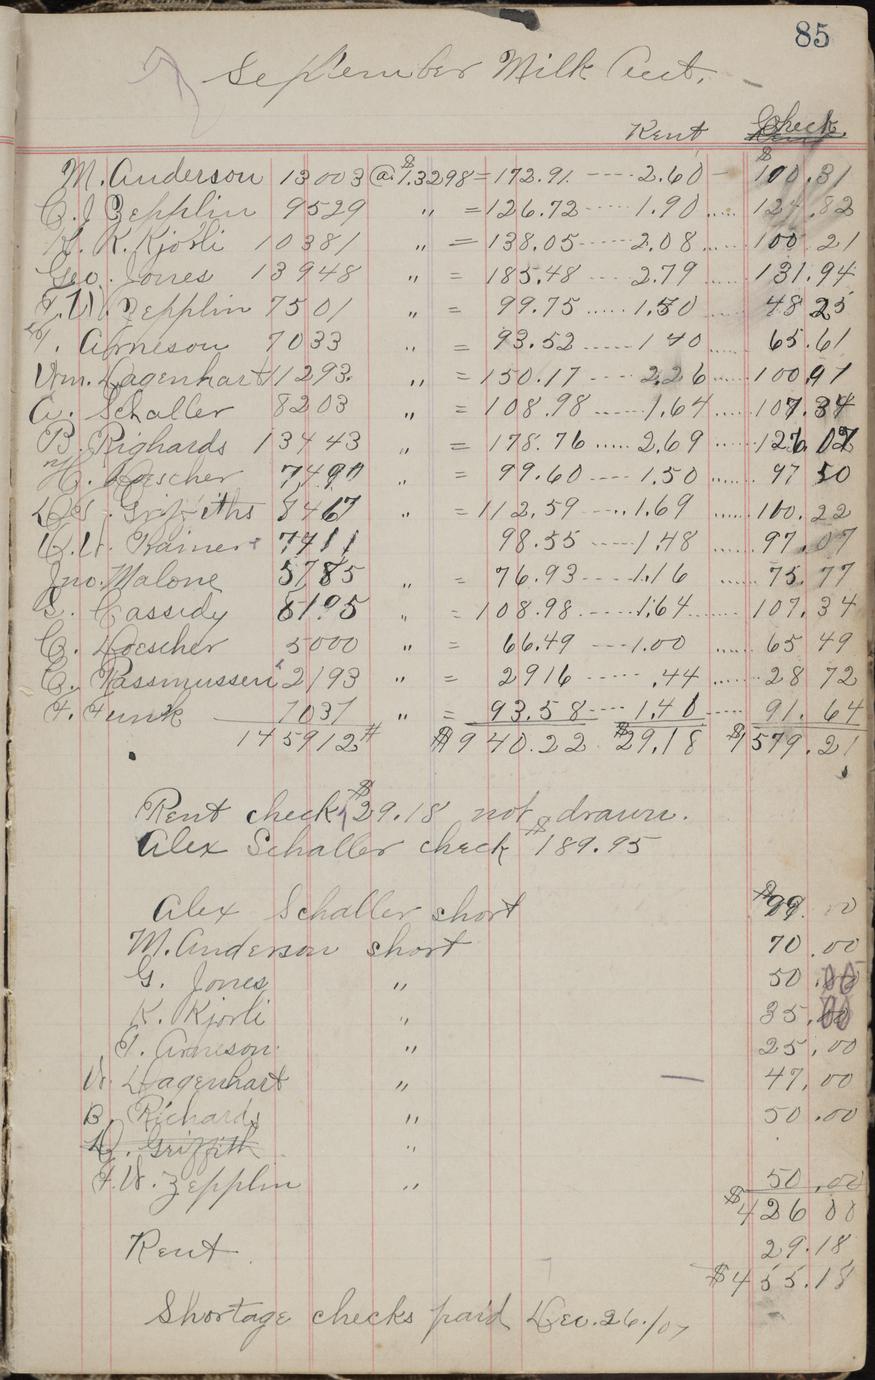 85
September Milk Acct.
Rent Check
M. Anderson 13003 @ $1.3298 = 172.91 ---- 2.60 - $100.31
C. J Zepplin 9529 " = 126.72 ----- 1.90 .... 124.82
K. K. Kjorli 10381 " = 138.05 ----- 2.08 ..... 100.21
Geo. Jones 13948 " = 185.48 ---- 2.79 ..... 131.94
F. W. Zepplin 7501 " = 99.75 ..... 1.50 ..... 48 25
T. Arneson 7033 " = 93.52 ----- 1 40 ..... 65.61
Wm. Dagenhart 11293. " = 150.17 ---- 2.26 ..... 100 91
A. Schaller 8203 " = 108.98 ----- 1.64 ..... 107.34
B. Righards 13443 " = 178.76 ..... 2.69 ..... 126.07
H. Loescher 7490 " = 99.60 ---- 1.50 ...... 97 50
D. S. Griffiths 8467 " = 112.59 ---.. 1.69 ...... 100.22
C. W. Rainer 7411 98.55 ----- 1.48 ..... 97.07
Jno. Malone 5785 " = 76.93 ---- 1.16 ...... 75.77
S. Cassidy 8195 " = 108.98 ---- 1.64 ...... 107.34
C. Loescher 5000 " = 66.49 ---- 1.00 ..... 65 49
C. Rassmussen 2193 " = 2916 ---- .44 ...... 28 72
F. Funk 7037 " = 93.58 ---- 1.40 ---- 91.64
145912# $1940.22 $29.18 $1579.21
Rent check $29.18 not drawn.
Alex Schaller check $189.95
Alex Schaller short $99.00
M. Anderson short 70.00
G. Jones " 50.00
K. Kjorli " 35.00
T. Arneson " 25.00
W. Dagenhart " 47.00
B. Richards " 50.00
D. Griffith "
F. W. Zepplin " 50.00
$426 00
Rent 29.18
$455.18
Shortage checks paid Dec. 26./07